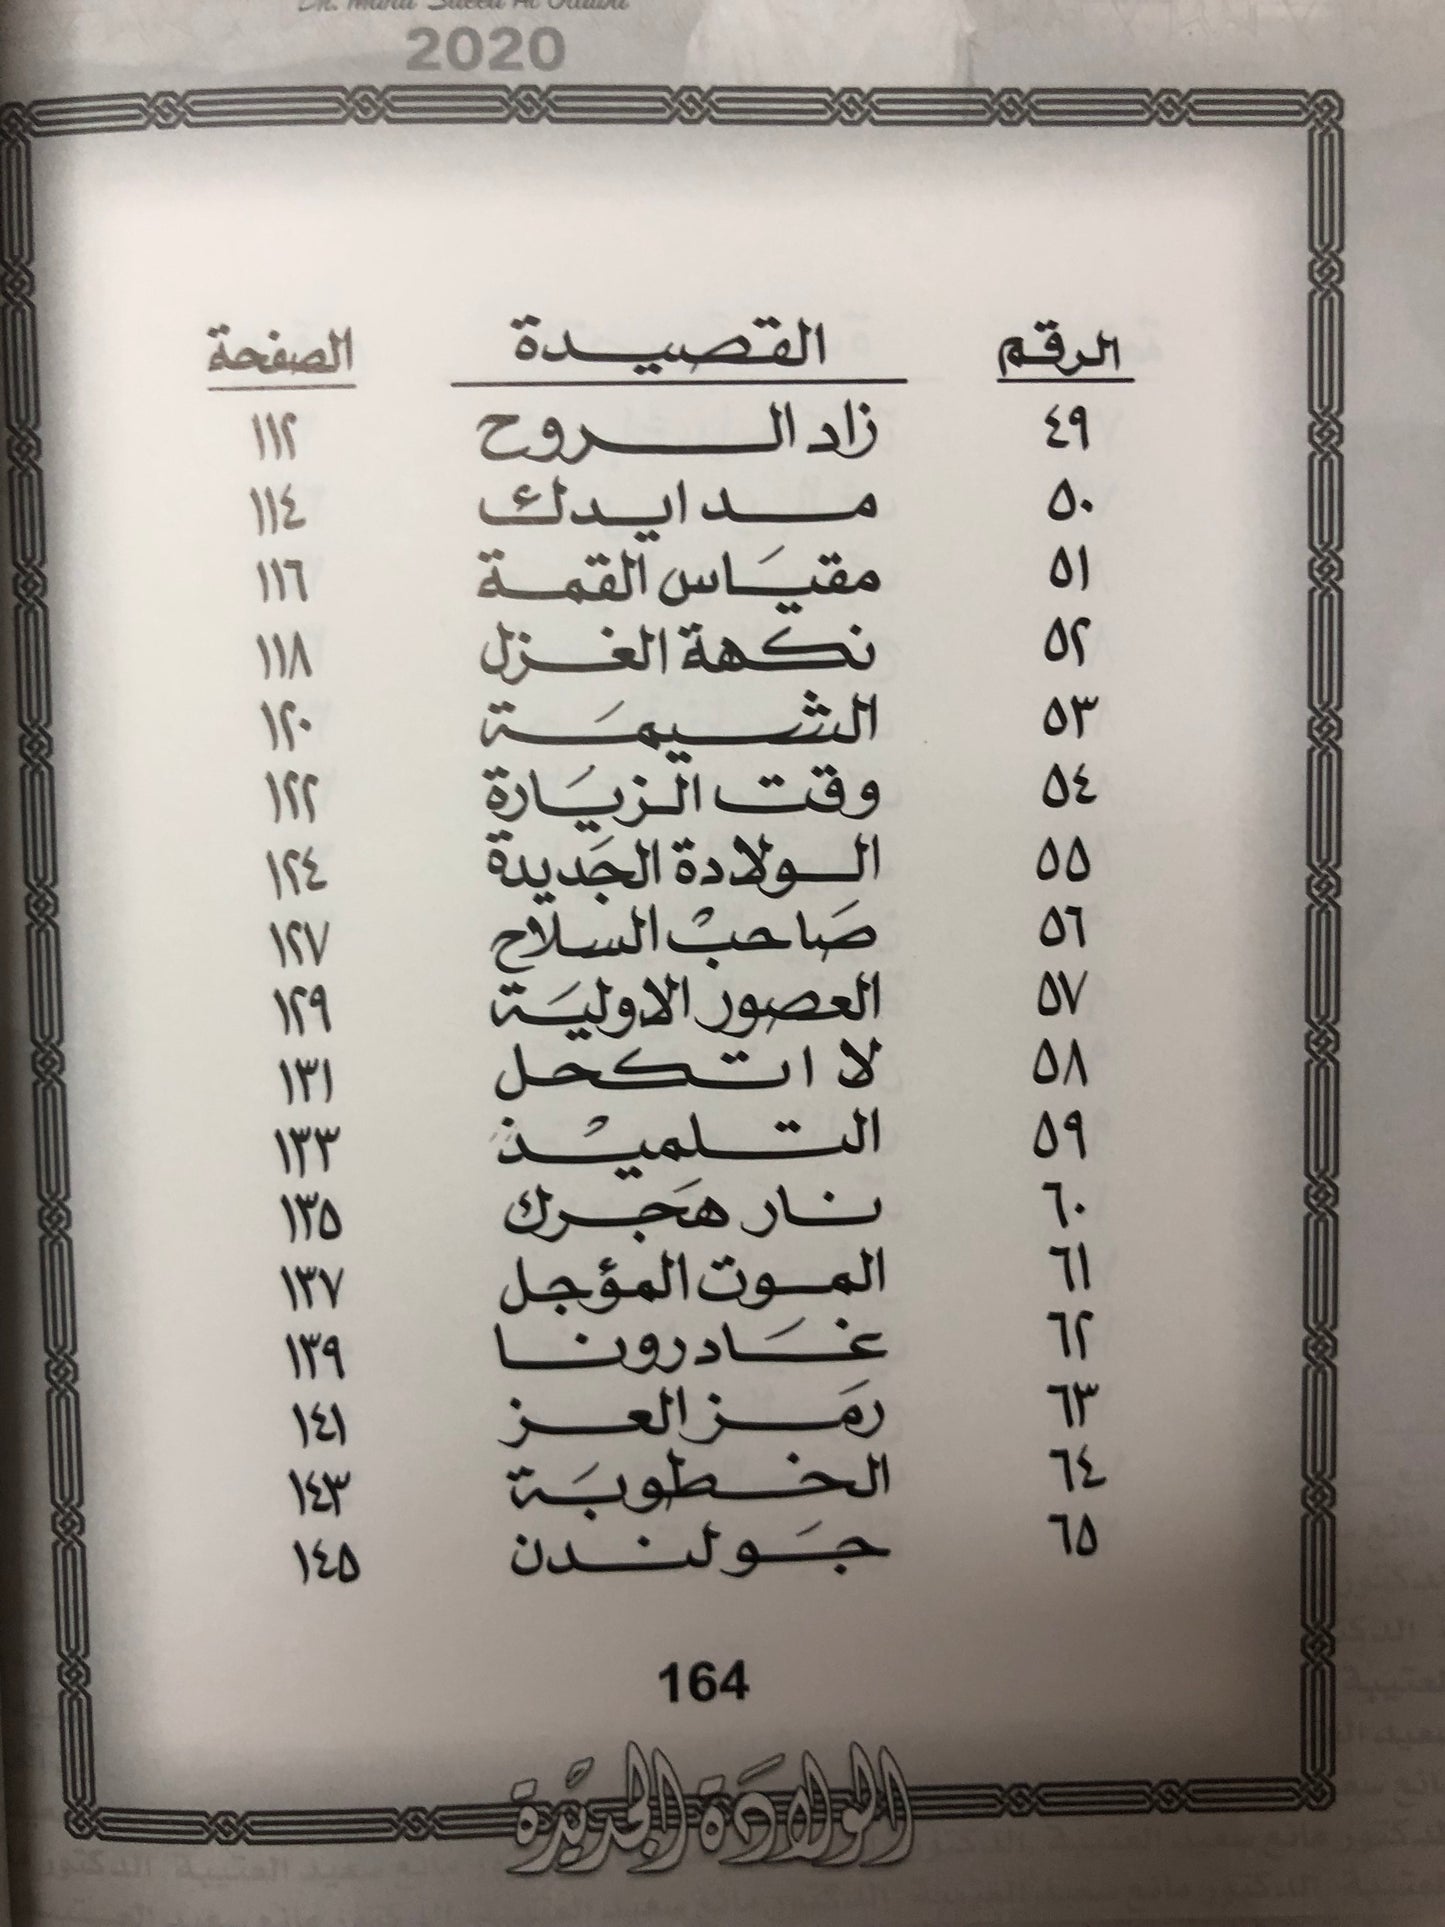 2020
الرقم القصيدة الصفحة
٤٩ زاد الروح ١١٢
٥٠ مد ايدك ١١٤
٥١ مقيَاس القمة ١١٦
٥٢ نكهة الغزل ١١٨
٥٣ الشيمَة ١٢٠
٥٤ وقت الزيَارة ١٢٢
٥٥ الولادة الجَديدة ١٢٤
٥٦ صَاحبْ السلاح ١٢٧
٥٧ العصور الاوليَة ١٢٩
٥٨ لا اتكحل ١٣١
٥٩ التلميْذ ١٣٣
٦٠ نار هَجرك ١٣٥
٦١ الموت المؤجل ١٣٧
٦٢ غَادرونا ١٣٩
٦٣ رمَز العز ١٤١
٦٤ الخطوبَة ١٤٣
٦٥ جَو لندن ١٤٥
164
الولادَة الجديْدة